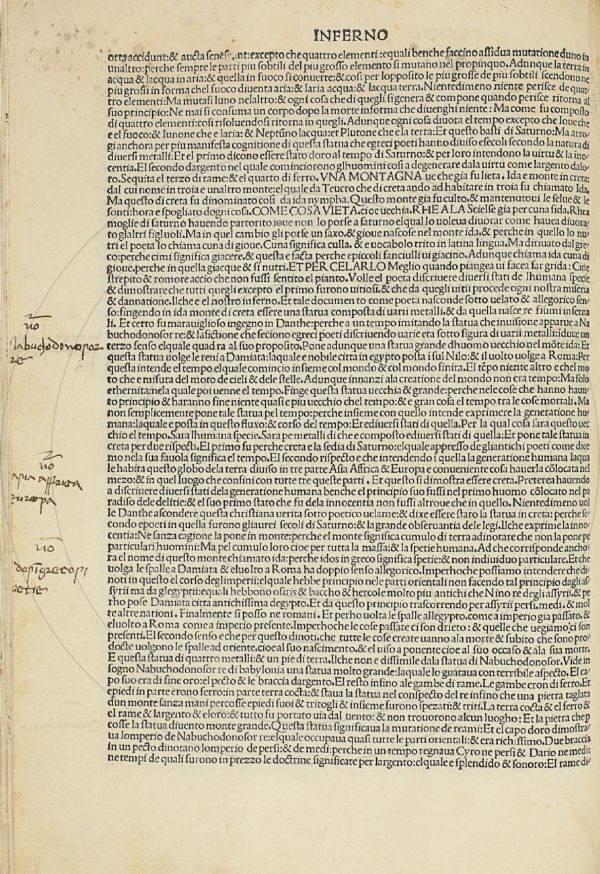 INFERNO
orta accidunt:& aucta senescunt:excepto che quattro elementi:equali benche faccino assidua mutatione duno in
unaltro:perche sempre le parti piu sobtili del piu grosso elemento si mutano nel propinquo. Adunque la terra in
acqua & lacqua in aria:& quella in fuoco si conuerte:& cosi per lopposito le piu grosse de piu sobtili scendono ne
piu grossi in forma chel fuoco diuenta aria:& laria acqua:& lacqua terra. Nientedimeno niente perisce de quat
tro elementi:Ma mutasi luno nelaltro:& ogni cosa che di quegli si genera & compone quando perisce ritorna al
suo principio:Ne mai si consuma un corpo dopo la morte informa che diuenghi niente: Ma come fu composto
di quattro elementi:cosi risoluendosi ritorna in quegli. Adunque ogni cosa diuora el tempo excepto che Ioue che
e el fuoco:& Iunone che e laria:& Neptuno lacqua:et Plutone che e la terra:Et questo basti di Saturno:Ma arro
gi anchora per piu manifesta cognitione di questa statua che egreci poeti hanno diuiso esecoli secondo la natura di
diuersi metalli:Et el primo dicono essere stato doro al tempo di Saturno:& per loro intendono la uirtu & la ino
centia. El secondo dargento nel quale comincioron glhuomini cosi a degenerare dala uirtu come largento dalo
ro. Sequita el terzo di rame:& el quarto di ferro. VNA MONTAGNA ue che gia fu lieta. Ida e monte in creta:
dal cui nome in troia e unaltro monte:el quale da Teucro che di creta ando ad habitare in troia fu chiamato Ida.
Ma questo di creta fu dinominato cosi da ida nympha. Questo monte gia fu culto:& mantenutoui le selue & le
fonti:hora e spogliato dogni cosa. COME COSA VIETA. cioe uechia. RHEA LA Scielse gia per cuna fida. Rhea
moglie di saturno hauendo partorito ioue non lo porse a saturno el qual lo uoleua diuorar come haueua diuora-
to glaltri figliuoli. Ma in quel cambio gli porse un saxo. & gioue nascose nel monte ida, & perche in quello lo nu-
tri el poeta lo chiama cuna di gioue. Cuna significa culla. & e uocabolo trito in latina lingua. Ma diriuato dal gre
co:perche cimi significa giacere. & questa e facta perche epiccoli fanciulli ui giacino. Adunque chiama ida cuna di
gioue, perche in quella giacque & si nutri. ET PER CELARLO Meglio quando piangea ui facea far grida: Cioe
strepito & romore accio che non fussi sentito el pianto. Volle el poeta discriuere diuersi stati de lhumana specie
& dimostrare che tutti quegli excepto el primo furono uitiosi. & che da quegli uitii procede ogni nostra miseria
& dannatione. Ilche e el nostro inferno. Et tale documento come poeta nasconde sotto uelato & allegorico sen-
so:fingendo in ida monte di creta essere una statua composta di uarii metalli. & da quella nasce re fiumi inferna
li. Et certo fu marauiglioso ingegno in Danthe:perche a un tempo imitando la statua che in uisione apparue a Na
buchodonosor re:& la fictione che feciono egreci poeti discriuendo uarie eta sotto figura di uarii metalli:iduce un
terzo senso elquale quadra al suo proposito. Pone adunque una statua grande dhuomo uecchio nel mote ida:Et
questa statua uolge le reni a Damiata:laquale e nobile citta in egypto posta i sul Nilo:& il uolto uolge a Roma:Per
questa intende el tempo elquale comincio insieme col mondo & col mondo finira. El tepo niente altro e chel mo
to che e misura del moto de cieli & dele stelle. Adunque innanzi ala creatione del mondo non era tempo:Ma solo
ethernita:nela quale poi uenne el tempo. Finge questa statua uecchia & grande:perche nele cose che hanno hauu-
to principio & haranno fine niente quasi e piu uecchio chel tempo:& e gran cosa el tempo tra le cose mortali. Ma
non semplicemente pone tale statua pel tempo:perche insieme con quello intende exprimere la generatione hu
mana:laquale e posta in questo fluxo:& corso del tempo:Et ediuersi stati di quella. Per la qual cosa sara questo uec
chio el tempo. Sara lhumana specie. Sara pe metalli di che e composto ediuersi stati di quella:Et pone tale statua in
creta per due rispecti. El primo fu perche creta e la sedia di Saturno:el quale appresso de gli antichi poeti come dice
mo nela sua fauola significa el tempo. El secondo rispecto e che intendendo quella la generatione humana laqua
le habita questo globo dela terra diuiso in tre parte Asia Affrica & Europa e conueniente cosa hauerla colocata nel
mezo:& in quel luogo che confini con tutte tre queste parti. Et questo si dimostra essere creta. Preterea hauendo
a discriuere diuersi stati dela generatione humana benche el principio suo fussi nel primo huomo colocato nel pa
radiso dele delitie:& el suo primo stato che fu dela innocentia non fussi altroue che in quello. Nientedimeno uol
le Danthe ascondere questa christiana uerita sotto poetico uelame:& dixe essere stato la statua in creta:perche se-
condo epoeti in quella furono gliaurei secoli di Saturno:& la grande obseruantia dele legi. Ilche exprime la inno
centia:Ne sanza cagione la pone in monte:perche el monte significa cumulo di terra adinotare che non la pone pe
particulari huomini:Ma pel cumulo loro cioe per tutta la massa:& la spetie humana. Ad che corresponde ancho
ra el nome di questo monte chiamato ida:perche idos in greco significa spetie:& non indiuiduo particulare. Et che
uolga le spalle a Damiata & eluolto a Roma ha doppio senso allegorico. Imperhoche possiamo intendere che di
noti in questo el corso degl imperii:el quale hebbe principio nele parti orientali non facendo tal principio dagli as
syrii ma da glegyptii:equali hebbono osiris & baccho & hercole molto piu antichi che Nino re degli assyrii. & pe
rho pose Damiata citta antichissima degypto. Et da questo principio trascorrendo per assyrii persi. medi. & mol
te altre nationi. Finalmente si posso ne romani. Et perho uolta le spalle allegypto.come a imperio gia passato. &
eluolto a Roma come a imperio presente. Imperhoche le cose passate ci son drieto:& quelle che uegiamo ci son
presenti. El secondo senso e che per questo dinoti, che tutte le cose create uanno ala morte & subito che sono pro
docte uolgono le spalle ad oriente, cioe al suo nascimento. & el uiso a ponente cioe al suo occaso & ala sua morte.
E questa statua di quattro metalli:& un pie di terra. Ilche non e dissimile dala statua di Nabuchodonosor. Vide in
sogno Nabuchodonosor re di babylonia una statua molto grande:laquale lo guataua con terribile aspecto. El ca
po suo era di fine oro:el pecto & le braccia dargento. El resto infino ale gambe di rame. Le gambe eron di ferro. Et
epiedi in parte erono ferro:in parte terra cocta:& staua la statua nel conspecto del re infino che una pietra tagliata
dun monte sanza mani percosse epiedi suoi & tritogli & insieme furono spezati:& triti. La terra cocta & el ferro &
el rame & largento & eloro:& tutto fu portato uia dal uento:& non trouorono alcun luogho:Et la pietra che p
cosse la statua diuento monte grande. Questa statua significaua la mutatione de reami:Et el capo doro dimostra-
ua lomperio de Nabuchodonosor re:elquale occupaua quasi tutte le parti orientali:& era richissimo. Due braccia
in un pecto dinotano lomperio de persi:& de medi:perche in un tempo regnaua Cyrone persi & Dario ne medi:
ne tempi de quali furono in prezzo le doctrine significate per largento:elquale e splendido & sonoro:El rame di
no
Nabuchodonosor
re
no
Asia affrica
Europa
no